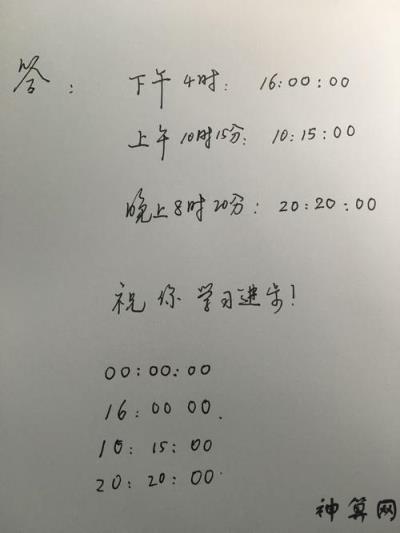 答:
下午4时: 16:00:00
上午10时15分: 10:15:00
晚上8时20分: 20:20:00
祝你学习进步!
00:00:00
16:00 00.
10:15:00
20:20:00.
神算网